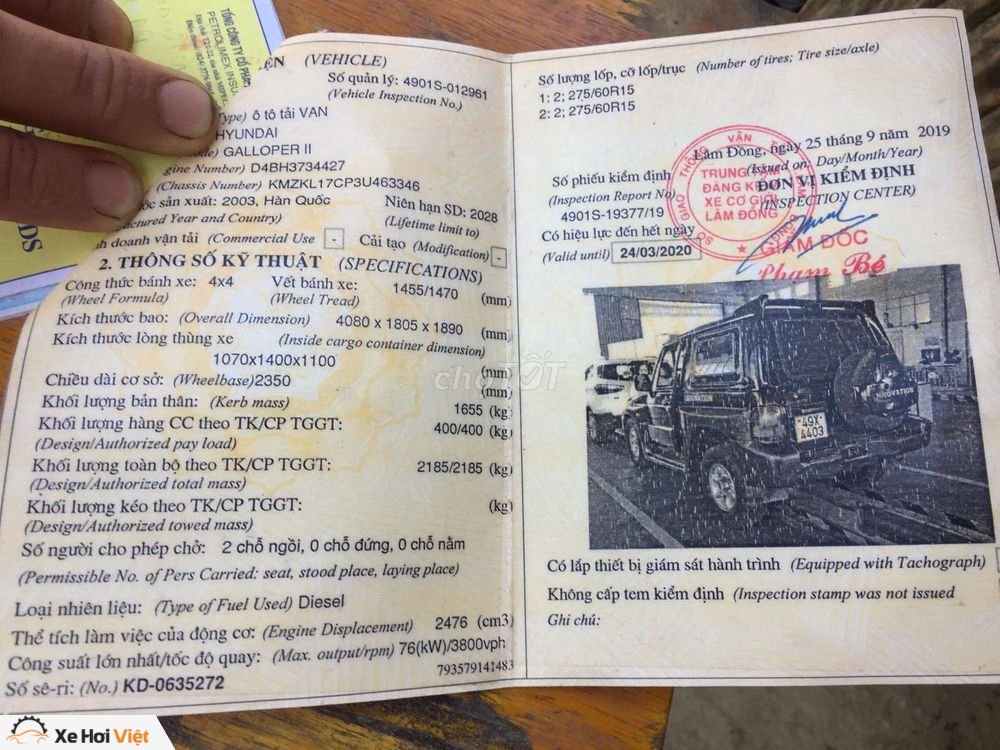 TỔNG CÔNG TY CỔ PHẦN
PETROLIMEX INSU
ỆN (VEHICLE)
Số quản lý: 4901S-012961
(Vehicle Inspection No.)
Type) ô tô tải VAN
HYUNDAI
GALLOPER II
gine Number) D4BH3734427
(Chassis Number) KMZKL17CP3U463346
ớc sản xuất: 2003, Hàn Quốc Niên hạn SD: 2028
factured Year and Country) (Lifetime limit to)
h doanh vận tải (Commercial Use - Cải tạo (Modification) -
2. THÔNG SỐ KỸ THUẬT (SPECIFICATIONS)
Công thức bánh xe: 4x4 Vết bánh xe: 1455/1470 (mm)
(Wheel Formula) (Wheel Tread)
Kích thước bao: (Overall Dimension) 4080 x 1805 x 1890 (mm)
Kích thước lòng thùng xe (Inside cargo container dimension)
1070x1400x1100 (mm)
Chiều dài cơ sở: (Wheelbase) 2350 (mm)
Khối lượng bản thân: (Kerb mass) 1655 (kg)
Khối lượng hàng CC theo TK/CP TGGT: 400/400 (kg)
(Design/Authorized pay load)
Khối lượng toàn bộ theo TK/CP TGGT: 2185/2185 (kg)
(Design/Authorized total mass)
Khối lượng kéo theo TK/CP TGGT: (kg)
(Design/Authorized towed mass)
Số người cho phép chở: 2 chỗ ngồi, 0 chỗ đứng, 0 chỗ nằm
(Permissible No. of Pers Carried: seat, stood place, laying place)
Loại nhiên liệu: (Type of Fuel Used) Diesel
Thể tích làm việc của động cơ: (Engine Displacement) 2476 (cm3)
Công suất lớn nhất/tốc độ quay: (Max. output/rpm) 76(kW)/3800vph
793579141483
Số sê-ri: (No.) KD-0635272
Số lượng lốp, cỡ lốp/trục (Number of tires; Tire size/axle)
1: 2; 275/60R15
2: 2; 275/60R15
Lâm Đồng, ngày 25 tháng 9 năm 2019
(Issued on. Day/Month/Year)
Số phiếu kiểm định ĐƠN VỊ KIỂM ĐỊNH
(Inspection Report No) (INSPECTION CENTER)
4901S-19377/19
Có hiệu lực đến hết ngày
(Valid until) 24/03/2020
TRUNG TÂM
ĐĂNG KIỂM
XE CƠ GIỚI
LÂM ĐỒNG
SỞ GIAO THÔNG VẬN
GIÁM ĐỐC
Phạm Bé
INNOVATION
INNOVATION
49X
4403
Có lắp thiết bị giám sát hành trình (Equipped with Tachograph)
Không cấp tem kiểm định (Inspection stamp was not issued
Ghi chú:
chợTỐT
Xe Hơi Việt